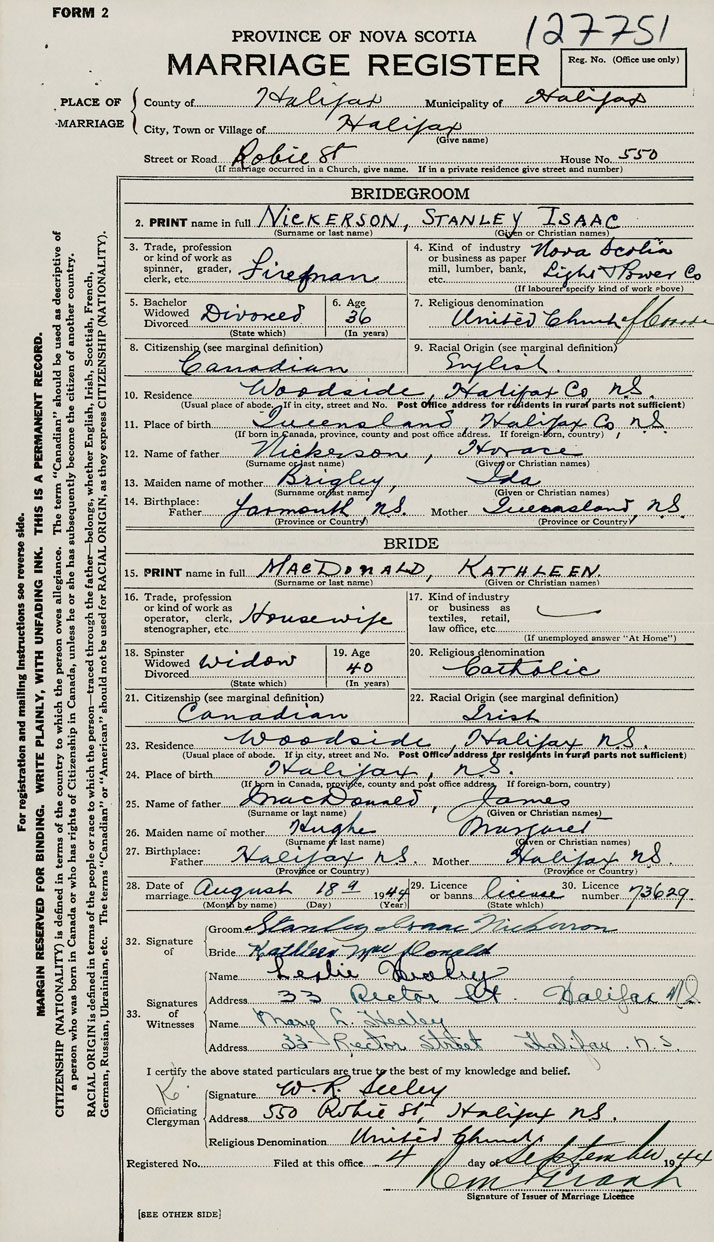 FORM 2
127751
PROVINCE OF NOVA SCOTIA
MARRIAGE REGISTER
Reg. No. (Office use only)
PLACE OF MARRIAGE
County of Halifax Municipality of Halifax
City, Town or Village of Halifax
(Give name)
Street or Road Robie St House No. 550
(If marriage occurred in a Church, give name. If in a private residence give street and number)
BRIDEGROOM
2. PRINT name in full NICKERSON, STANLEY ISAAC
(Surname or last name) (Given or Christian names)
3. Trade, profession or kind of work as spinner, grader, clerk, etc. Fireman
4. Kind of industry or business as paper mill, lumber, bank, etc. Nova Scotia Light & Power Co
(If labourer specify kind of work above)
5. Bachelor Widowed Divorced Divorced
(State which)
6. Age 36
(In years)
7. Religious denomination United Church of Canada
8. Citizenship (see marginal definition) Canadian
9. Racial Origin (see marginal definition) English.
10. Residence Woodside, Halifax Co, N.S.
(Usual place of abode. If in city, street and No. Post Office address for residents in rural parts not sufficient)
11. Place of birth Queensland, Halifax Co, N.S.
(If born in Canada, province, county and post office address. If foreign-born, country)
12. Name of father Nickerson, Horace
(Surname or last name) (Given or Christian names)
13. Maiden name of mother Brigley, Ida
(Surname or last name) (Given or Christian names)
14. Birthplace: Father Yarmouth N.S. Mother Queensland, N.S.
(Province or Country) (Province or Country)
BRIDE
15. PRINT name in full MACDONALD, KATHLEEN.
(Surname or last name) (Given or Christian names)
16. Trade, profession or kind of work as operator, clerk, stenographer, etc. Housewife
17. Kind of industry or business as textiles, retail, law office, etc.
(If unemployed answer "At Home")
18. Spinster Widowed Divorced Widow
(State which)
19. Age 40
(In years)
20. Religious denomination Catholic
21. Citizenship (see marginal definition) Canadian
22. Racial Origin (see marginal definition) Irish
23. Residence Woodside, Halifax N.S.
(Usual place of abode. If in city, street and No. Post Office address for residents in rural parts not sufficient)
24. Place of birth Halifax, N.S.
(If born in Canada, province, county and post office address. If foreign-born, country)
25. Name of father MacDonald, James
(Surname or last name) (Given or Christian names)
26. Maiden name of mother Hughe Margaret
(Surname or last name) (Given or Christian names)
27. Birthplace: Father Halifax N.S. Mother Halifax N.S.
(Province or Country) (Province or Country)
28. Date of marriage August 18 1944
(Month by name) (Day) (Year)
29. Licence or banns license
(State which)
30. Licence number 73629
32. Signature of
Groom Stanley Isaac Nickerson
Bride Kathleen MacDonald
33. Signatures of Witnesses
Name Leslie Healey
Address 33 Rector St. Halifax N.S.
Name Mary L. Healey
Address 33 Rector Street Halifax. N.S.
I certify the above stated particulars are true to the best of my knowledge and belief.
Officiating Clergyman
Signature W. R. Seeley
Address 550 Robie St, Halifax N.S.
Religious Denomination United Church
Registered No. Filed at this office 4 day of September 1944
Signature of Issuer of Marriage Licence
[SEE OTHER SIDE]
For registration and mailing instructions see reverse side.
MARGIN RESERVED FOR BINDING. WRITE PLAINLY, WITH UNFADING INK. THIS IS A PERMANENT RECORD.
CITIZENSHIP (NATIONALITY) is defined in terms of the country to which the person owes allegiance. The term "Canadian" should be used as descriptive of
a person who was born in Canada or who has rights of Citizenship in Canada, unless he or she has subsequently become the citizen of another country.
RACIAL ORIGIN is defined in terms of the people or race to which the person—traced through the father—belongs, whether English, Irish, Scottish, French,
German, Russian, Ukrainian, etc. The terms "Canadian" or "American" should not be used for RACIAL ORIGIN, as they express CITIZENSHIP (NATIONALITY).